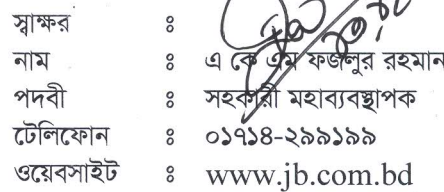 স্বাক্ষর ঃ
নাম ঃ এ কে এম ফজলুর রহমান
পদবী ঃ সহকারী মহাব্যবস্থাপক
টেলিফোন ঃ ০১৭১৪-২৯৯১৯৯
ওয়েবসাইট ঃ www.jb.com.bd